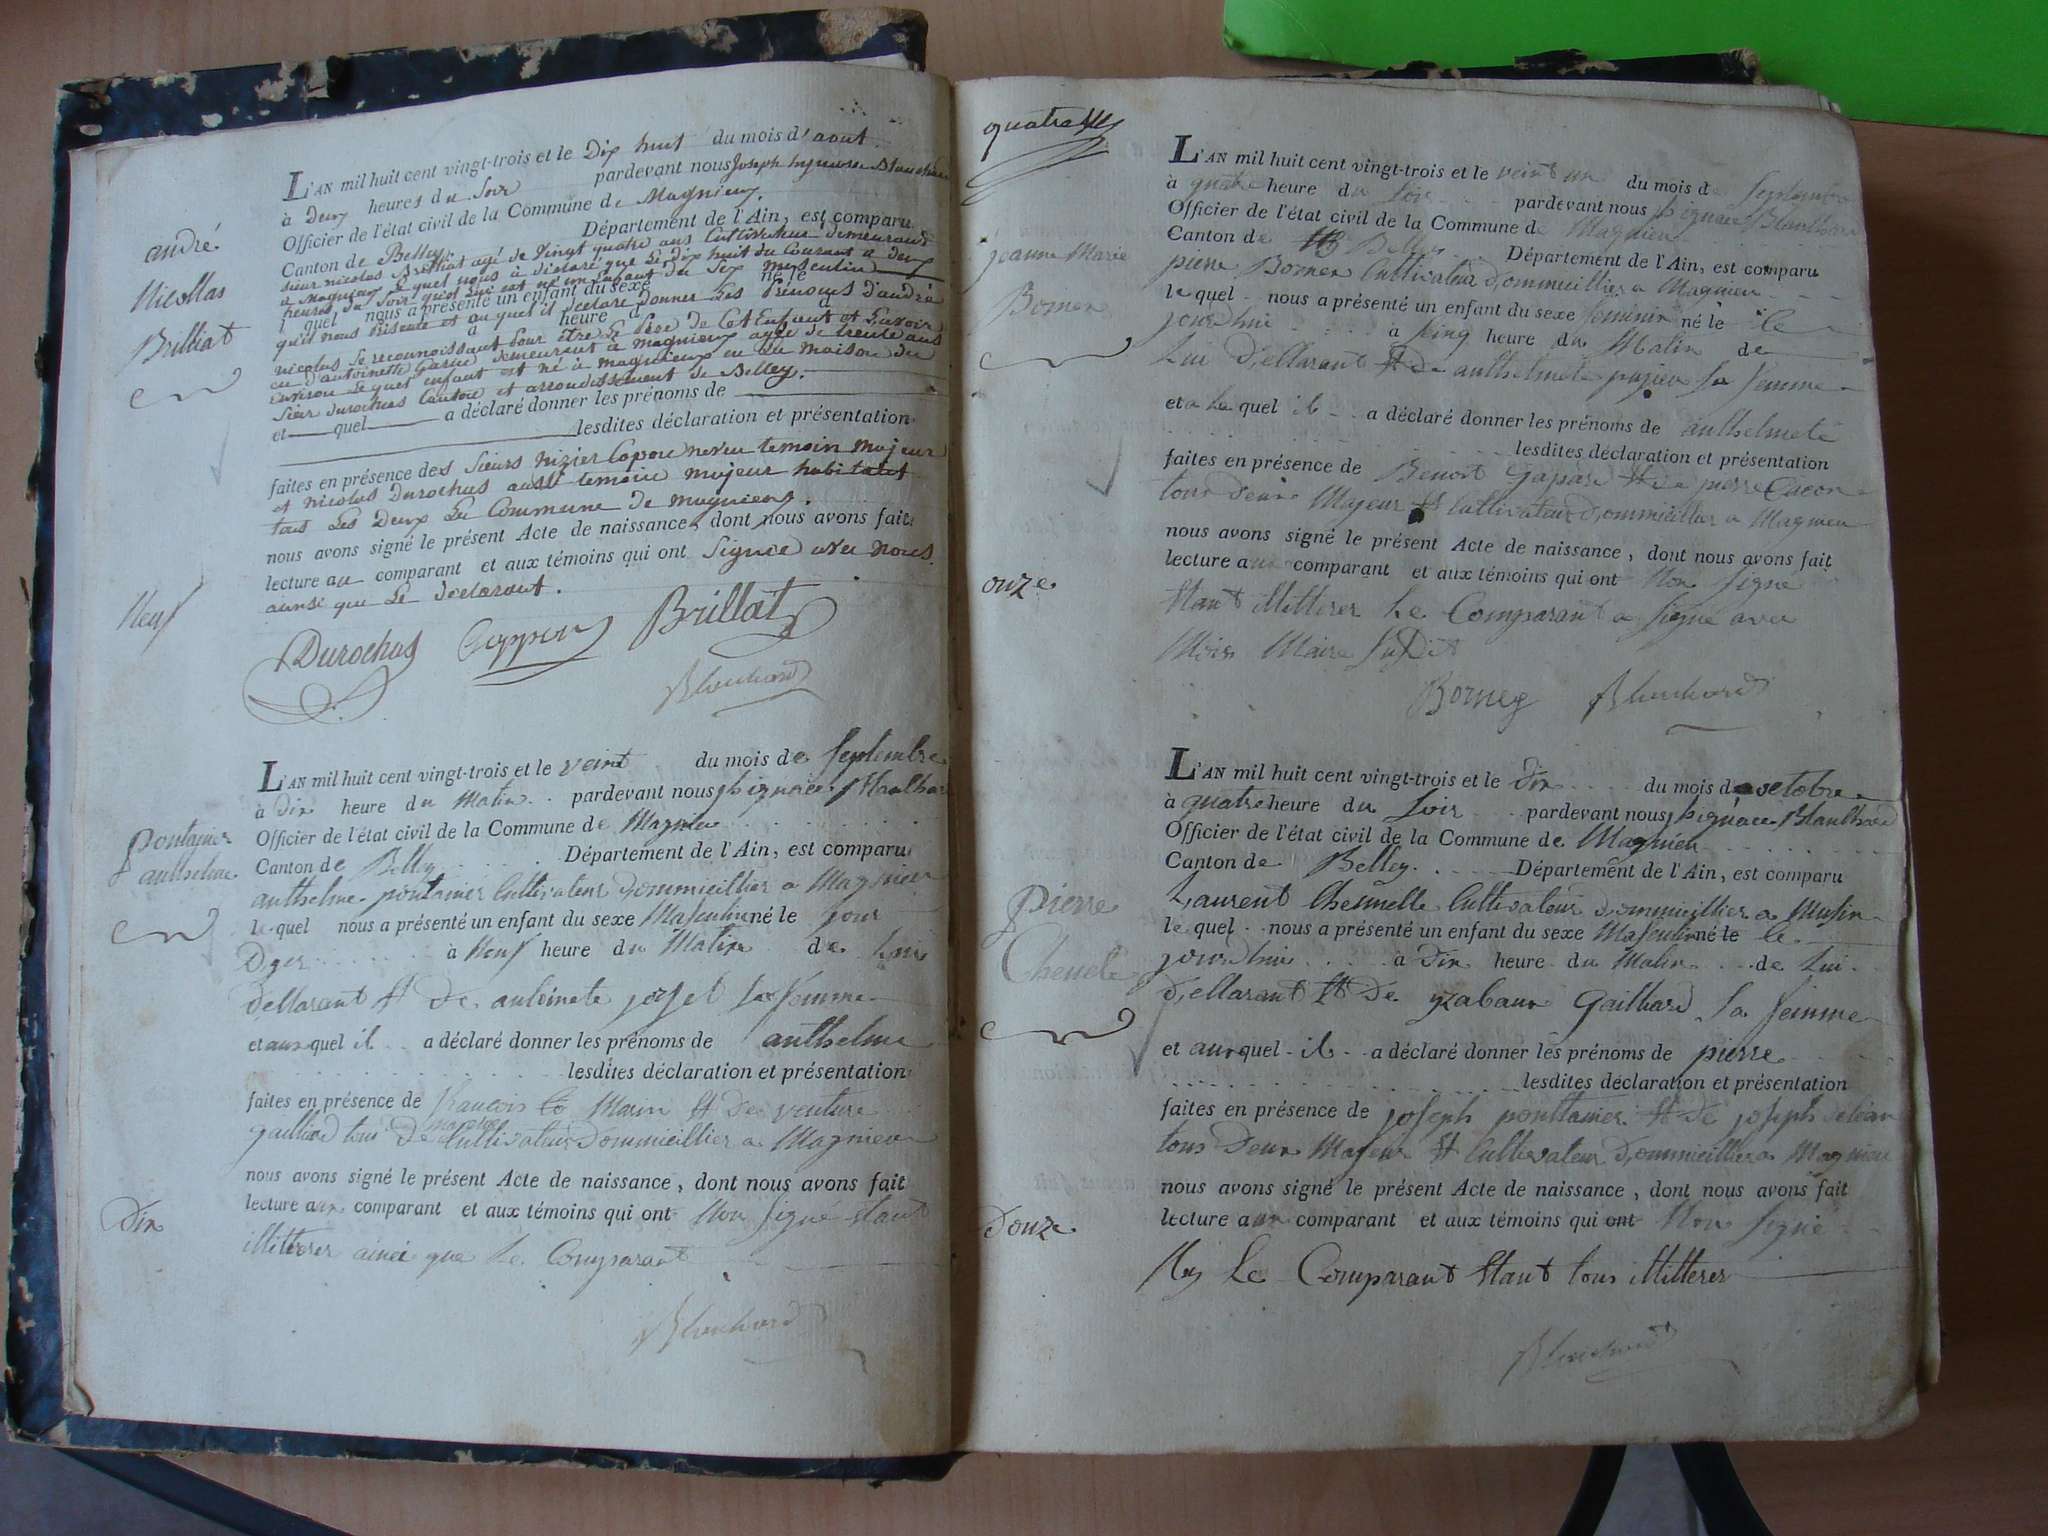 L'AN mil huit cent vingt-trois et le Dix huit du mois d'aout
à Deux heures du Soir pardevant nous Joseph
Officier de l'état civil de la Commune de Magnieux.
Canton de Belley. Département de l'Ain, est comparu
sieur nicolas Brillat agé de vingt quatre ans Cultivateur demeurant
a Magnieux Lequel nous à déclaré que Le dix huit du Courant a deux
heures du Soir qu'il Lui est né un Enfant du Sex Masculin
l quel nous a présenté un enfant du sexe né le
qu'il nous présente et au quel il déclare donner Les Prénoms D'andré
à heure d
nicolas Se reconnoissant pour être Le Père de Cet Enfant et L'avoir
eu d'antoinette demeurant à magnieux agée de trente ans
Environ Lequel enfant est né à magnieux en La maison du
Sieur Durochas Canton et arrondissement de Belley.
et quel a déclaré donner les prénoms de
lesdites déclaration et présentation
faites en présence des Sieurs nizier Copon temoin majeur
et nicolas Durochas aussi temoin majeur habitant
tout Les Deux La Commune de magnieux.
nous avons signé le présent Acte de naissance, dont nous avons fait
lecture au comparant et aux témoins qui ont Signée avec nous
ainsi que Le Déclarant.
andré
Nicollas
Brilliat
Neuf
Durochas Coppon Brillat
Blanchard
L'AN mil huit cent vingt-trois et le veint du mois de Septembre
à Dix heure du Matin pardevant nous
Officier de l'état civil de la Commune de Magnieu
Canton de Belley Département de l'Ain, est comparu
anthelme pontanier Cultivateur Dommicillier a Magnieu
le quel nous a présenté un enfant du sexe Masculin né le jour
Dyer à Neuf heure du Matin de Lui
Dellarant Et De antoinete jozet Sa Femme
et auxquel il a déclaré donner les prénoms de anthelme
lesdites déclaration et présentation
faites en présence de francois Marin Et De venture
gailliard tous De majeur Cultivateur Dommicillier a Magnieu
nous avons signé le présent Acte de naissance, dont nous avons fait
lecture aux comparant et aux témoins qui ont Non Signé Etant
illitterer ainci que Le Comparant
pontanier
anthelme
Dix
Blanchard
quatre
L'AN mil huit cent vingt-trois et le veint un du mois de Septembre
à quatre heure du Soir pardevant nous
Officier de l'état civil de la Commune de Magnieu
Canton de Belley Département de l'Ain, est comparu
pierre Borner Cultivateur Dommicillier a Magnieu
le quel nous a présenté un enfant du sexe feminin né le le
jourdhui à Sinq heure du Matin de
Lui Dellarant Et De anthelmete pugieu Sa Femme
et a la quel il a déclaré donner les prénoms de anthelmete
lesdites déclaration et présentation
faites en présence de Benoit Gaspard Et De pierre
tous Deux Majeur Et Cultivateur Dommicillier a Magnieu
nous avons signé le présent Acte de naissance, dont nous avons fait
lecture aux comparant et aux témoins qui ont Non Signé
Etant illitterer Le Comparant a Signé avec
Maire Sudit
jeanne Marie
Borner
onze
Borney Blanchard
L'AN mil huit cent vingt-trois et le Dix du mois d octobre
à quatre heure du Soir pardevant nous
Officier de l'état civil de la Commune de Magnieu
Canton de Belley. Département de l'Ain, est comparu
Laurent Chenelle Cultivateur Dommicillier a Musin
le quel nous a présenté un enfant du sexe Masculin né le le
jourdhui à Dix heure du Matin de Lui
Dellarant Et De yzabaux Gailliard Sa Femme
et auxquel il a déclaré donner les prénoms de pierre
lesdites déclaration et présentation
faites en présence de joseph pontianier Et De joseph
tous Deux Majeur Et Cultivateur Dommicillier a Magnieu
nous avons signé le présent Acte de naissance, dont nous avons fait
lecture aux comparant et aux témoins qui ont Non Signé
Ny Le Comparant Etant tous illitterer
Pierre
Chenele
Douze
Blanchard